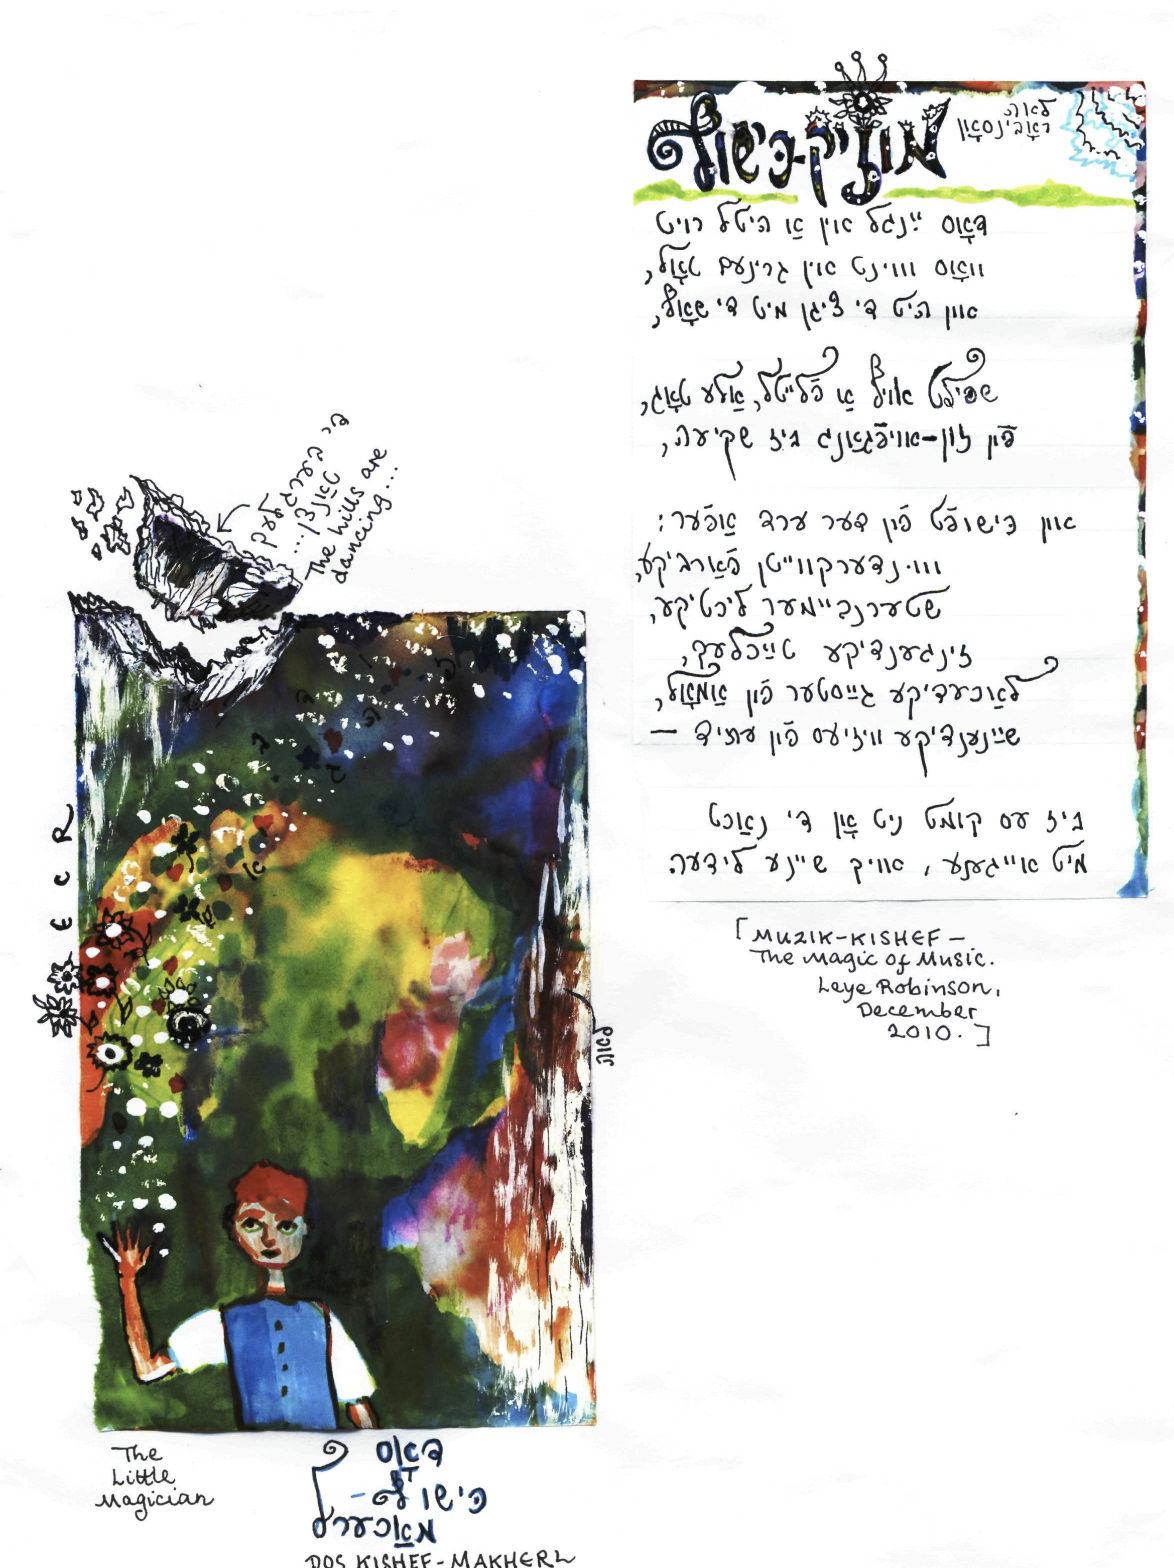 מוזיק-כּישוף
לאה
ראָבינסאָן
דאָס ייִנגל אין אַ היטל רויט
וואָס וווינט אין גרינעם טאָל,
און היט די ציגן מיט די שאָף,
שפּילט אויף אַ פֿלייטל, אַלע טאָג,
פֿון זון-אויפֿגאַנג ביז שקיעה,
און כּישופֿט פֿון דער ערד אַפֿער:
ווּנדערקווייטן פֿאַרביקע,
שטערנביימער ליכטיקע,
זינגענדיקע טײַכלעך,
לאַכעדיקע גײַסטער פֿון אַמאָל,
שײַנענדיקע וויזיעס פֿון עתיד —
ביז עס קומט ניט אָן די נאַכט
מיט אייגענע, אויך שיינע לידער.
[MUZIK-KISHEF –
The Magic of Music.
Leye Robinson,
December
2010.]
די בערגלעך
טאַנצן...
The hills are
dancing...
לאה
The
Little
Magician
דאָס
כּישוף-
מאַכערל
DOS KISHEF-MAKHERL